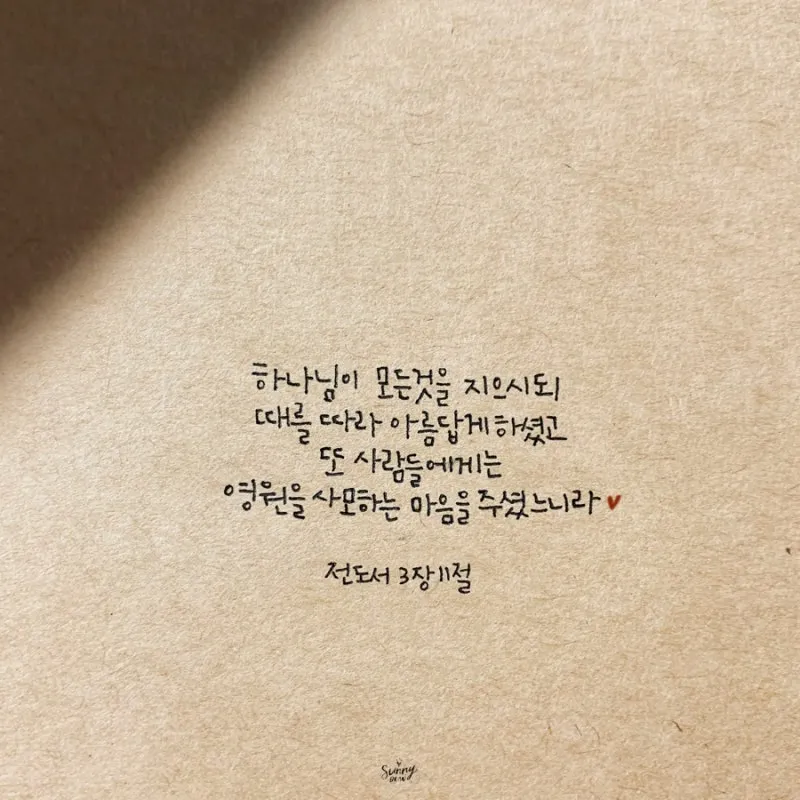 하나님이 모든것을 지으시되
때를 따라 아름답게 하셨고
또 사람들에게는
영원을 사모하는 마음을 주셨느니라
전도서 3장 11절
Sunny